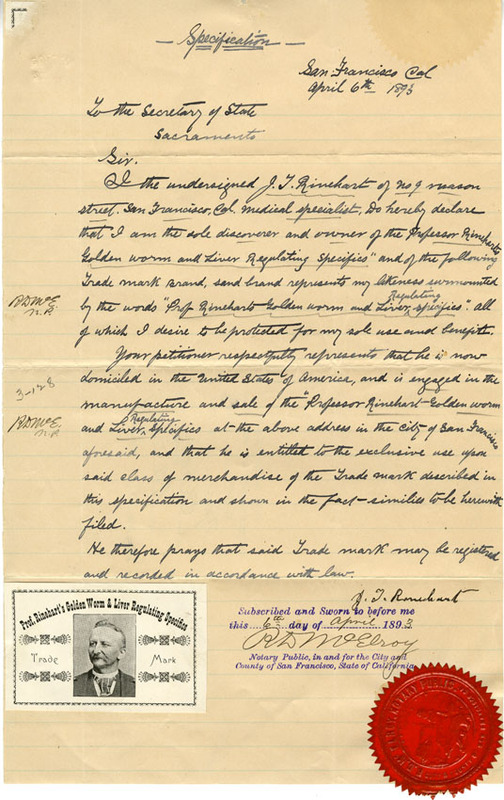 — Specification —
San Francisco Cal
April 6th 1893
To the Secretary of State
Sacramento
Sir.
I the undersigned J. T. Rinehart of No 9 mason
street. San Francisco, Cal. Medical specialist, Do hereby declare
that I am the sole discoverer and owner of the Professor Rineharts
Golden worm and Liver Regulating Specifics" and of the following
Trade mark Brand, said brand represents my likeness surmounted
Regulating
by the words "Prof Rineharts Golden worm and Liver ^ specifics". all
R D McE.
N. P.
of which I desire to be protected for my sole use and benefit.
Your petitioner respectfully represents that he is now
domiciled in the United States of America, and is engaged in the
3-128
manufacture and sale of the Professor Rinehart Golden worm
Regulating
and Liver ^ Specifics at the above address in the City of San Francisco
R D McE.
N. P.
aforesaid, and that he is entitled to the exclusive use upon
said class of merchandise of the Trade mark described in
this specification and shown in the fact-similies to be herewith
filed.
He therefore prays that said Trade mark may be registered
and recorded in accordance with law.
J. T. Rinehart
Prof. Rinehart's Golden Worm & Liver Regulating Specifics
Trade Mark
Subscribed and Sworn to before me
this 6th day of April 1893
R D McElroy
Notary Public, in and for the City and
County of San Francisco, State of California